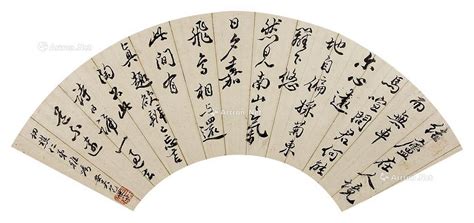 結廬在人境
而無車
馬喧問君何能
尔心遠
地自偏採菊東
籬下悠
然見南山々氣
日夕嘉
飛鳥相與還
此間有
真趣欲辨已忘言
詩日誦一過